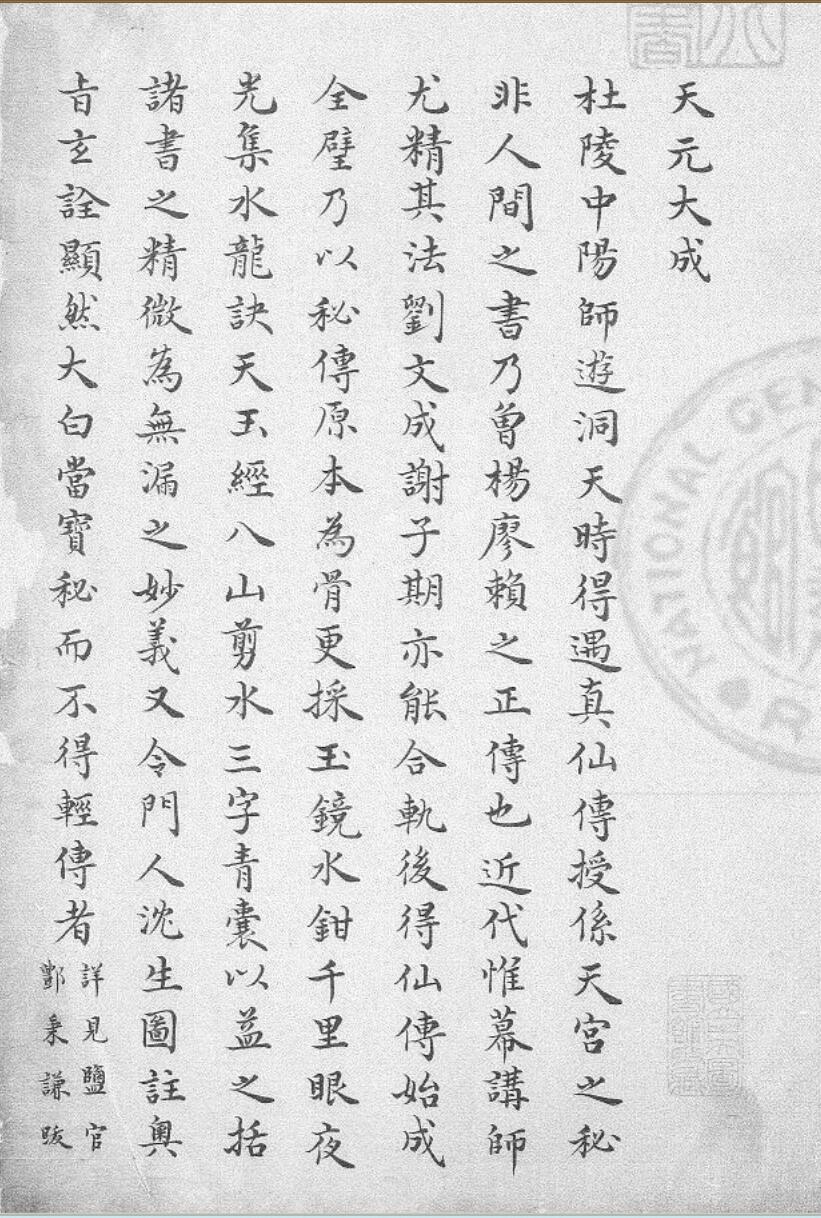 天元大成
杜陵中陽師遊洞天時得遇真仙傳授係天宮之秘
非人間之書乃曾楊廖賴之正傳也近代惟幕講師
尤精其法劉文成謝子期亦能合軌後得仙傳始成
全璧乃以秘傳原本為骨更採玉鏡水鉗千里眼夜
光集水龍訣天玉經八山剪水三字青囊以益之括
諸書之精微為無漏之妙義又令門人沈生圖註奧
旨玄詮顯然大白當寶秘而不得輕傳者
詳見鹽官
酆秉謙跋